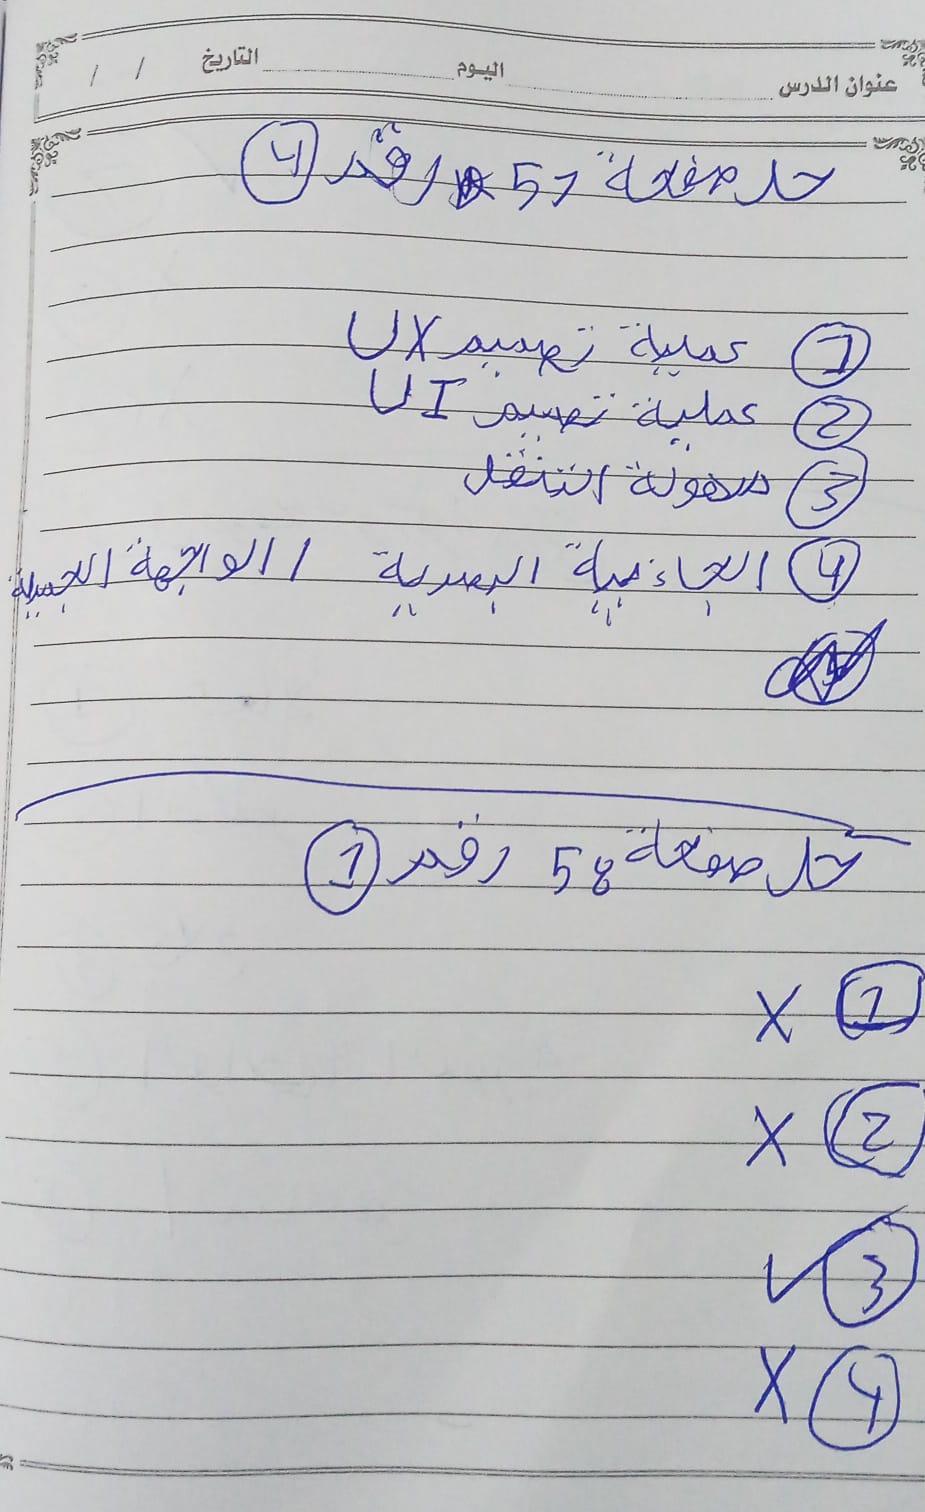 عنوان الدرس اليوم التاريخ / /
حل صفحة 57 رقم 4
1 عملية تصميم UX
2 عملية تصميم UI
3 سهولة التنقل
4 الجاذبية البصرية / الواجهة الجميلة
حل صفحة 58 رقم 1
1 X
2 X
3 ✓
4 X